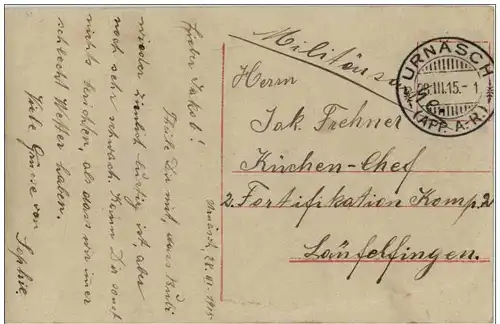 Urnäsch, 28. III. 1915
Lieber Jakob!
Theile Dir mit, dass Ruli
wieder ziemlich lustig ist, aber
noch sehr schwach. Kann Dir sonst
nichts berichten, als dass wir immer
schlecht Wetter haben,
Viele Grüsse von
Sophie
Militärsache
URNÄSCH
28.III.15.-1
(APP. A.-R.)
Herrn
Jak. Frehner
Küchen-Chef
2. Fortifikation Komp. 2
Läufelfingen.